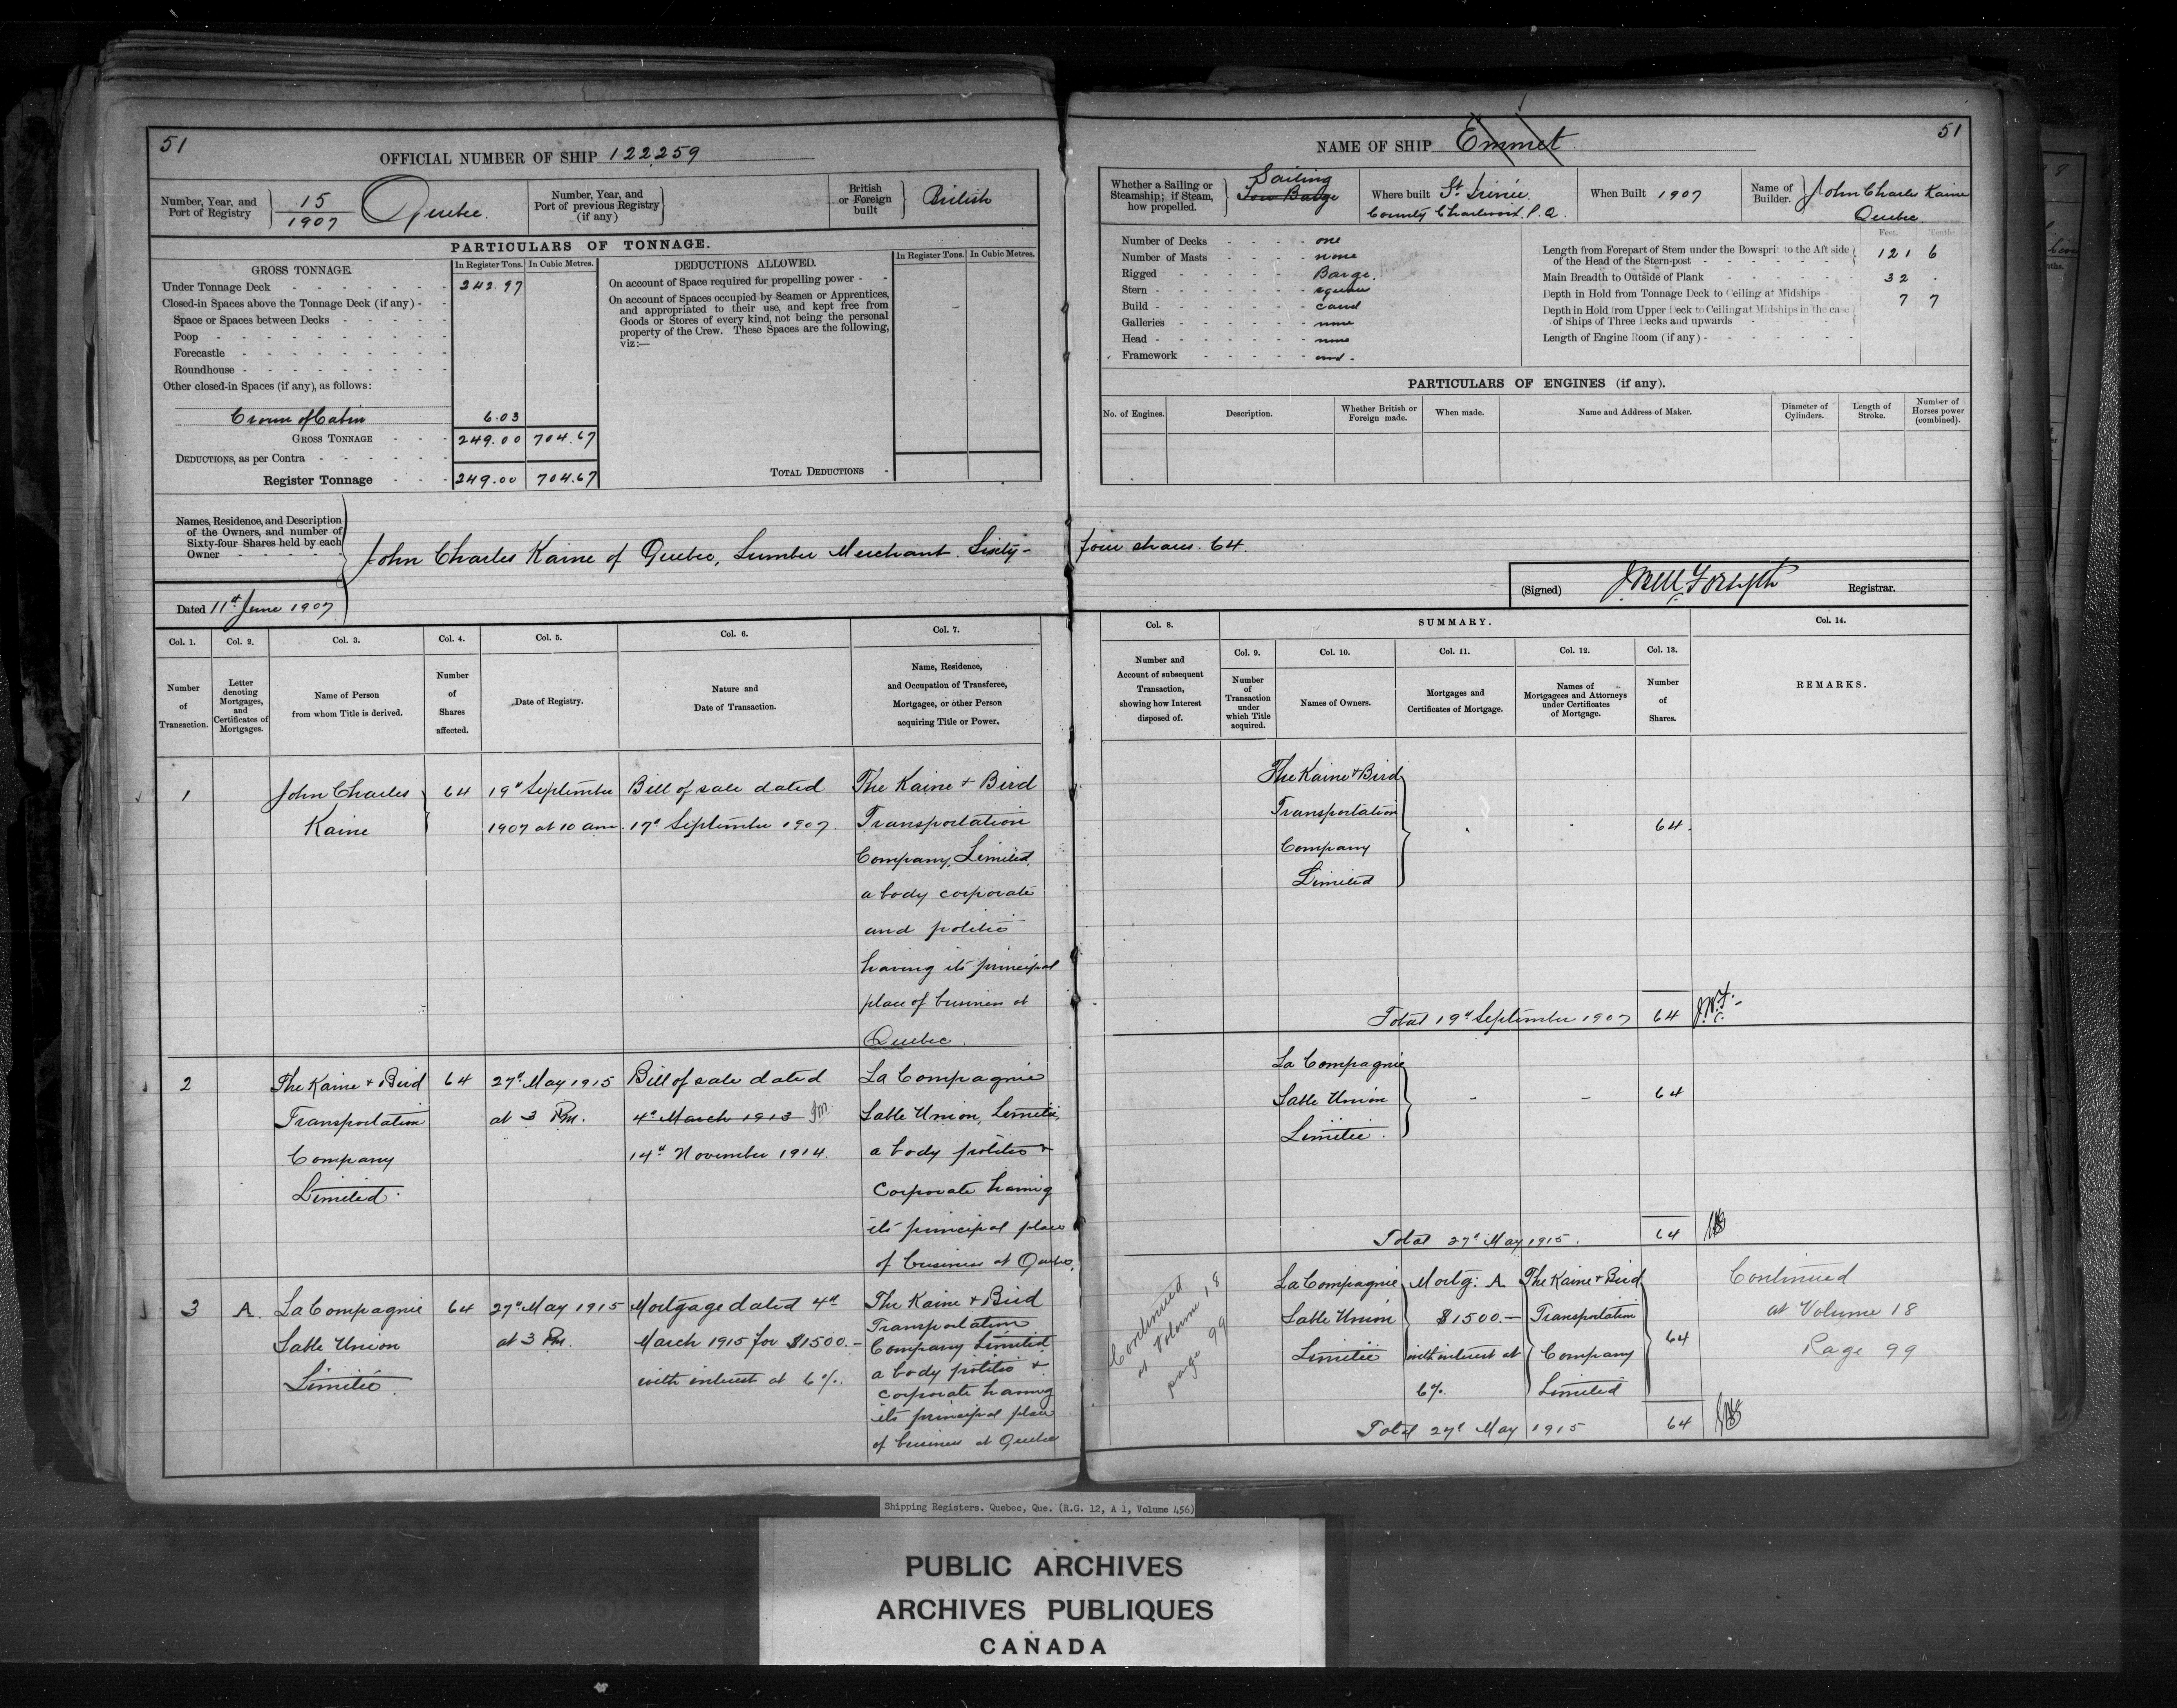 51
OFFICIAL NUMBER OF SHIP 122259
Number, Year, and Port of Registry 15/1907 Quebec.
Number, Year, and Port of previous Registry (if any)
British or Foreign built British
PARTICULARS OF TONNAGE.
GROSS TONNAGE.
In Register Tons. In Cubic Metres.
Under Tonnage Deck 242.97
Closed-in Spaces above the Tonnage Deck (if any)
Space or Spaces between Decks
Poop
Forecastle
Roundhouse
Other closed-in Spaces (if any), as follows:
Crown of Cabin 6.03
GROSS TONNAGE 249.00 704.67
DEDUCTIONS, as per Contra
Register Tonnage 249.00 704.67
DEDUCTIONS ALLOWED.
In Register Tons. In Cubic Metres.
On account of Space required for propelling power
On account of Spaces occupied by Seamen or Apprentices,
and appropriated to their use, and kept free from
Goods or Stores of every kind, not being the personal
property of the Crew. These Spaces are the following,
viz:—
TOTAL DEDUCTIONS
Names, Residence, and Description
of the Owners, and number of
Sixty-four Shares held by each
Owner
John Charles Kaine of Quebec, Lumber Merchant. Sixty-
Dated 11th June 1907
Col. 1. Col. 2. Col. 3. Col. 4. Col. 5. Col. 6. Col. 7.
Number of Transaction.
Letter denoting Mortgages, and Certificates of Mortgages.
Name of Person from whom Title is derived.
Number of Shares affected.
Date of Registry.
Nature and Date of Transaction.
Name, Residence, and Occupation of Transferee, Mortgagee, or other Person acquiring Title or Power.
1 John Charles 64 19th September Bill of sale dated The Kaine + Bird
Kaine 1907 at 10 am. 17th September 1907. Transportation
Company, Limited,
a body corporate
and politic
having its principal
place of business at
Quebec.
2 The Kaine + Bird 64 27th May 1915 Bill of sale dated La Compagnie
Transportation at 3 Pm. 4th March 1913 Sable Union, Limitée,
Company 14th November 1914. a body politic +
Limited. corporate having
its principal place
of business at Quebec.
3 A. La Compagnie 64 27th May 1915 Mortgage dated 4th The Kaine + Bird
Sable Union at 3 Pm. March 1915 for $1500.— Transportation
Limitée. with interest at 6%. Company Limited
a body politic +
corporate having
its principal place
of business at Quebec
51
NAME OF SHIP Emmet
Whether a Sailing or Steamship; if Steam, how propelled. Sailing
Tow Barge
Where built St. Irénée
County Charlevoix, P.Q.
When Built 1907
Name of Builder. John Charles Kaine
Quebec.
Number of Decks one
Number of Masts none
Rigged Barge
Stern square
Build carvel
Galleries none
Head none
Framework wood.
Feet. Tenths.
Length from Forepart of Stem under the Bowsprit to the Aft side
of the Head of the Stern-post 121 6
Main Breadth to Outside of Plank 32
Depth in Hold from Tonnage Deck to Ceiling at Midships 7 7
Depth in Hold from Upper Deck to Ceiling at Midships in the case
of Ships of Three Decks and upwards
Length of Engine Room (if any)
PARTICULARS OF ENGINES (if any).
No. of Engines. Description. Whether British or Foreign made. When made. Name and Address of Maker. Diameter of Cylinders. Length of Stroke. Number of Horses power (combined).
four shares. 64.
(Signed) Registrar.
Col. 8. SUMMARY. Col. 14.
Col. 9. Col. 10. Col. 11. Col. 12. Col. 13.
Number and Account of subsequent Transaction, showing how Interest disposed of.
Number of Transaction under which Title acquired.
Names of Owners.
Mortgages and Certificates of Mortgage.
Names of Mortgagees and Attorneys under Certificates of Mortgage.
Number of Shares.
REMARKS.
The Kaine + Bird
Transportation
Company
Limited
64.
Total 19th September 1907 64
La Compagnie
Sable Union
Limitée.
64
Total 27th May 1915. 64
Continued
at Volume 18
page 99
La Compagnie Mortg: A The Kaine + Bird
Sable Union $1500.— Transportation
Limitée with interest at Company 64
6%. Limited
Total 27th May 1915 64
Continued
at Volume 18
Page 99
Shipping Registers. Quebec, Que. (R.G. 12, A 1, Volume 456)
PUBLIC ARCHIVES
ARCHIVES PUBLIQUES
CANADA